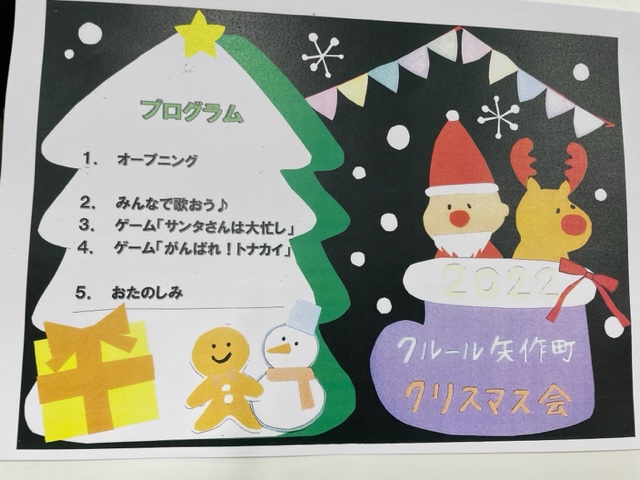 プログラム
1. オープニング
2. みんなで歌おう♪
3. ゲーム「サンタさんは大忙し」
4. ゲーム「がんばれ！トナカイ」
5. おたのしみ
2022
クルール矢作町
クリスマス会